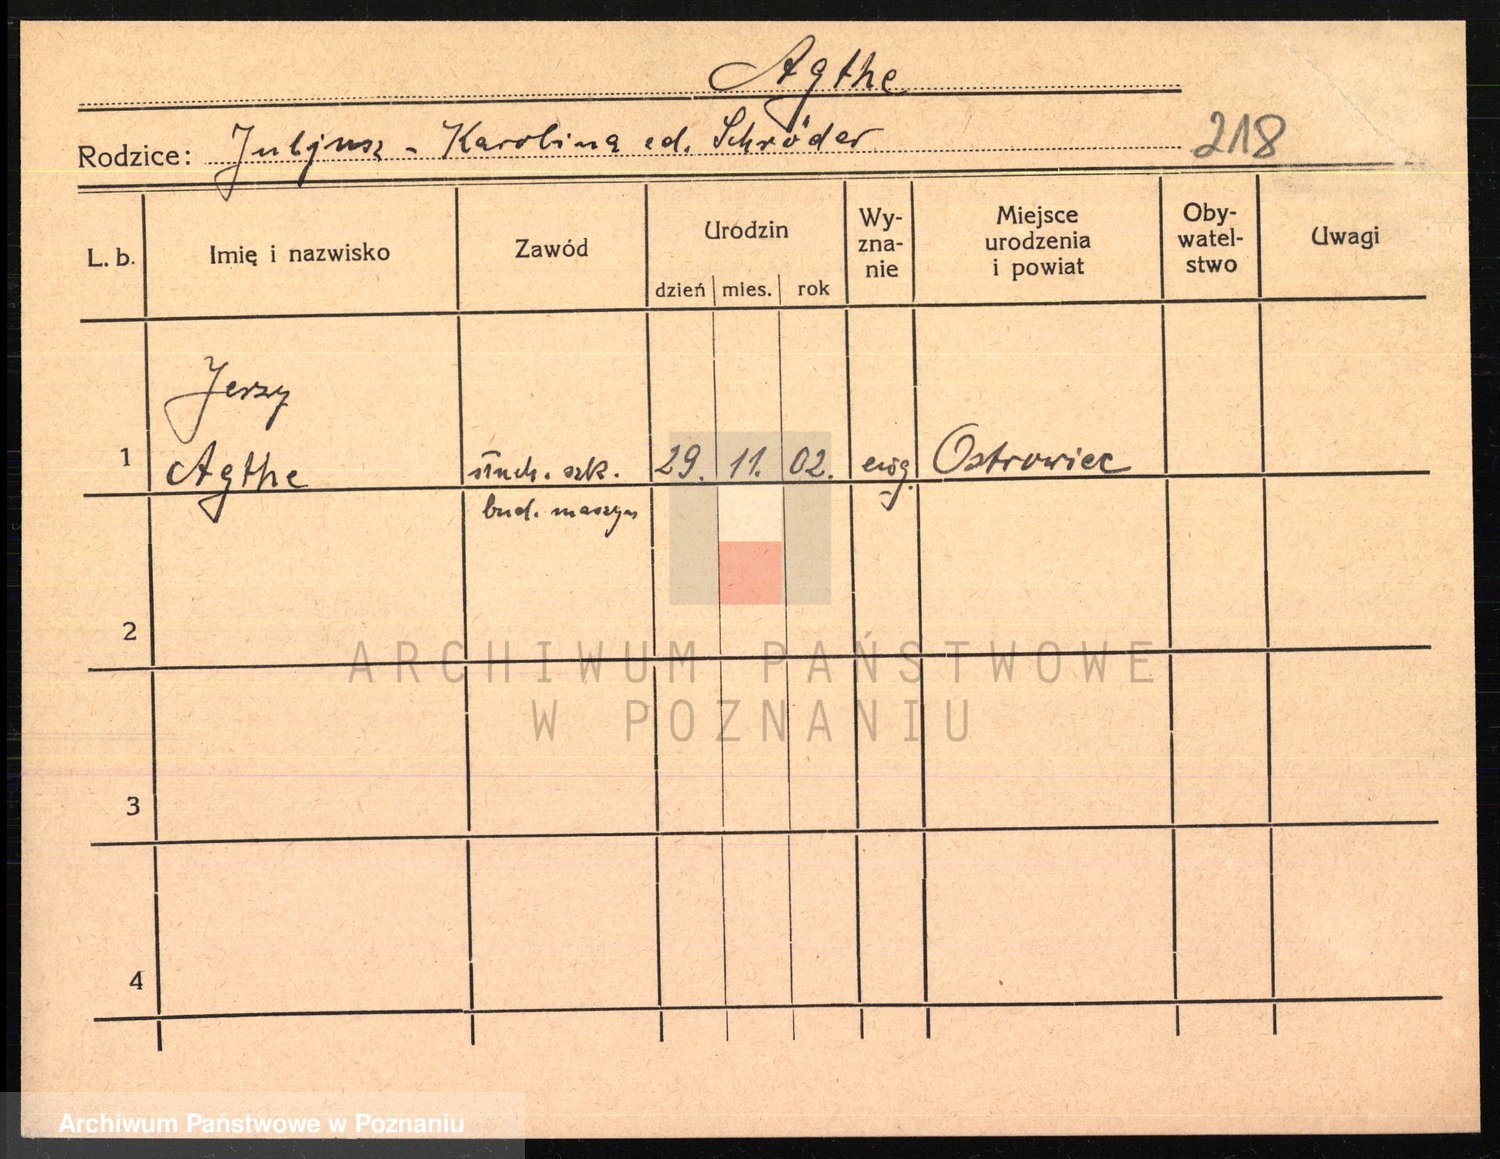 Agthe
Rodzice: Juljusz - Karolina zd. Schröder
218
L. b.
Imię i nazwisko
Zawód
Urodzin
dzień mies. rok
Wy-
zna-
nie
Miejsce
urodzenia
i powiat
Oby-
watel-
stwo
Uwagi
Jerzy
1 Agthe słuch. szk. 29. 11. 02. ewg. Ostrowiec
bud. maszyn
2
3
4
ARCHIWUM PAŃSTWOWE
W POZNANIU
Archiwum Państwowe w Poznaniu